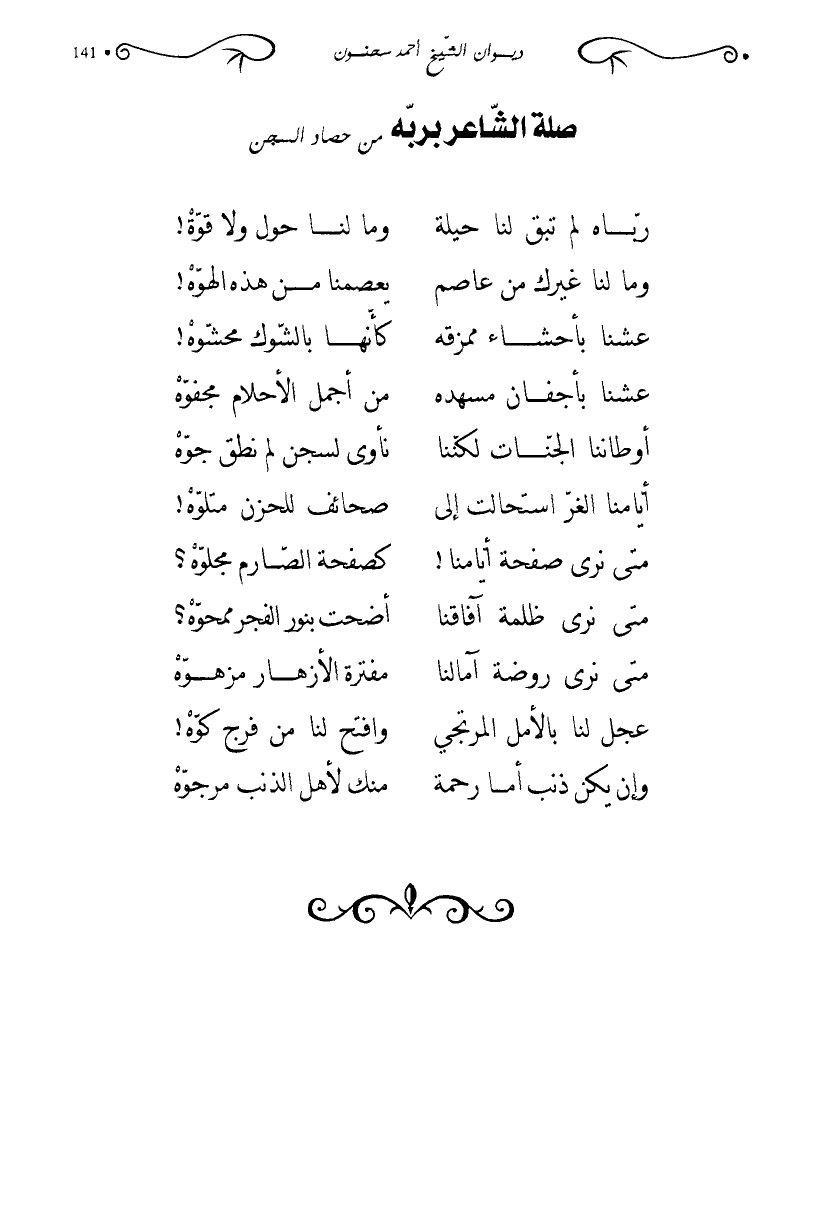 ديـوان الشّيخ أحمد سحنـون • 141
صلة الشّاعر بربّه من حصاد السجن
ربّـاه لم تبق لنا حيلة وما لنـا حول ولا قوّهْ!
وما لنا غيرك من عاصم يعصمنا مـن هذه الهوّهْ!
عشنا بأحشـاء ممزقه كأنّهـا بالشّوك محشّوهْ!
عشنا بأجفـان مسهده من أجمل الأحلام مجفوّهْ
أوطاننا الجنّـات لكنّنا نأوى لسجن لم نطق جوّهْ
أيامنا الغرّ استحالت إلى صحائف للحزن متلوّهْ!
متى نرى صفحة أيامنا! كصفحة الصّارم مجلوّهْ؟
متى نرى ظلمة آفاقنا أضحت بنور الفجر ممحوّهْ؟
متى نرى روضة آمالنا مفترة الأزهـار مزهـوّهْ
عجل لنا بالأمل المرتجي وافتح لنا من فرج كوّهْ!
وإن يكن ذنب أمـا رحمة منك لأهل الذنب مرجوّهْ